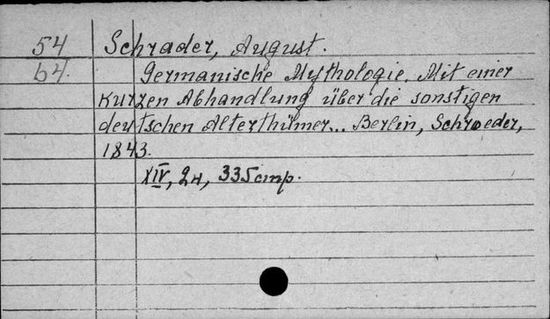 54 Schrader, August.
64. Germanische Mythologie. Mit einer
kurzen Abhandlung über die sonstigen
deutschen Alterthümer... Berlin, Schroeder,
1843.
XIV, 24, 335 стр.